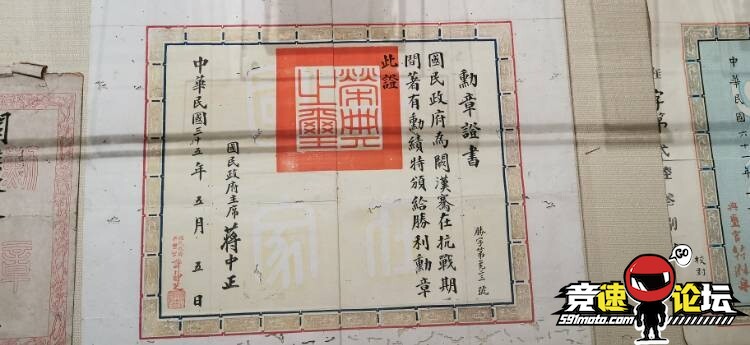 勳章證書
國民政府為闕漢騫在抗戰期
間著有勳績特頒給勝利勳章
此證
榮典之璽
國民政府主席 蔣中正
中華民國三十五年 五月 五日
勝字第
號
字第
中華民國六十
GO
竞速论坛
591moto.com